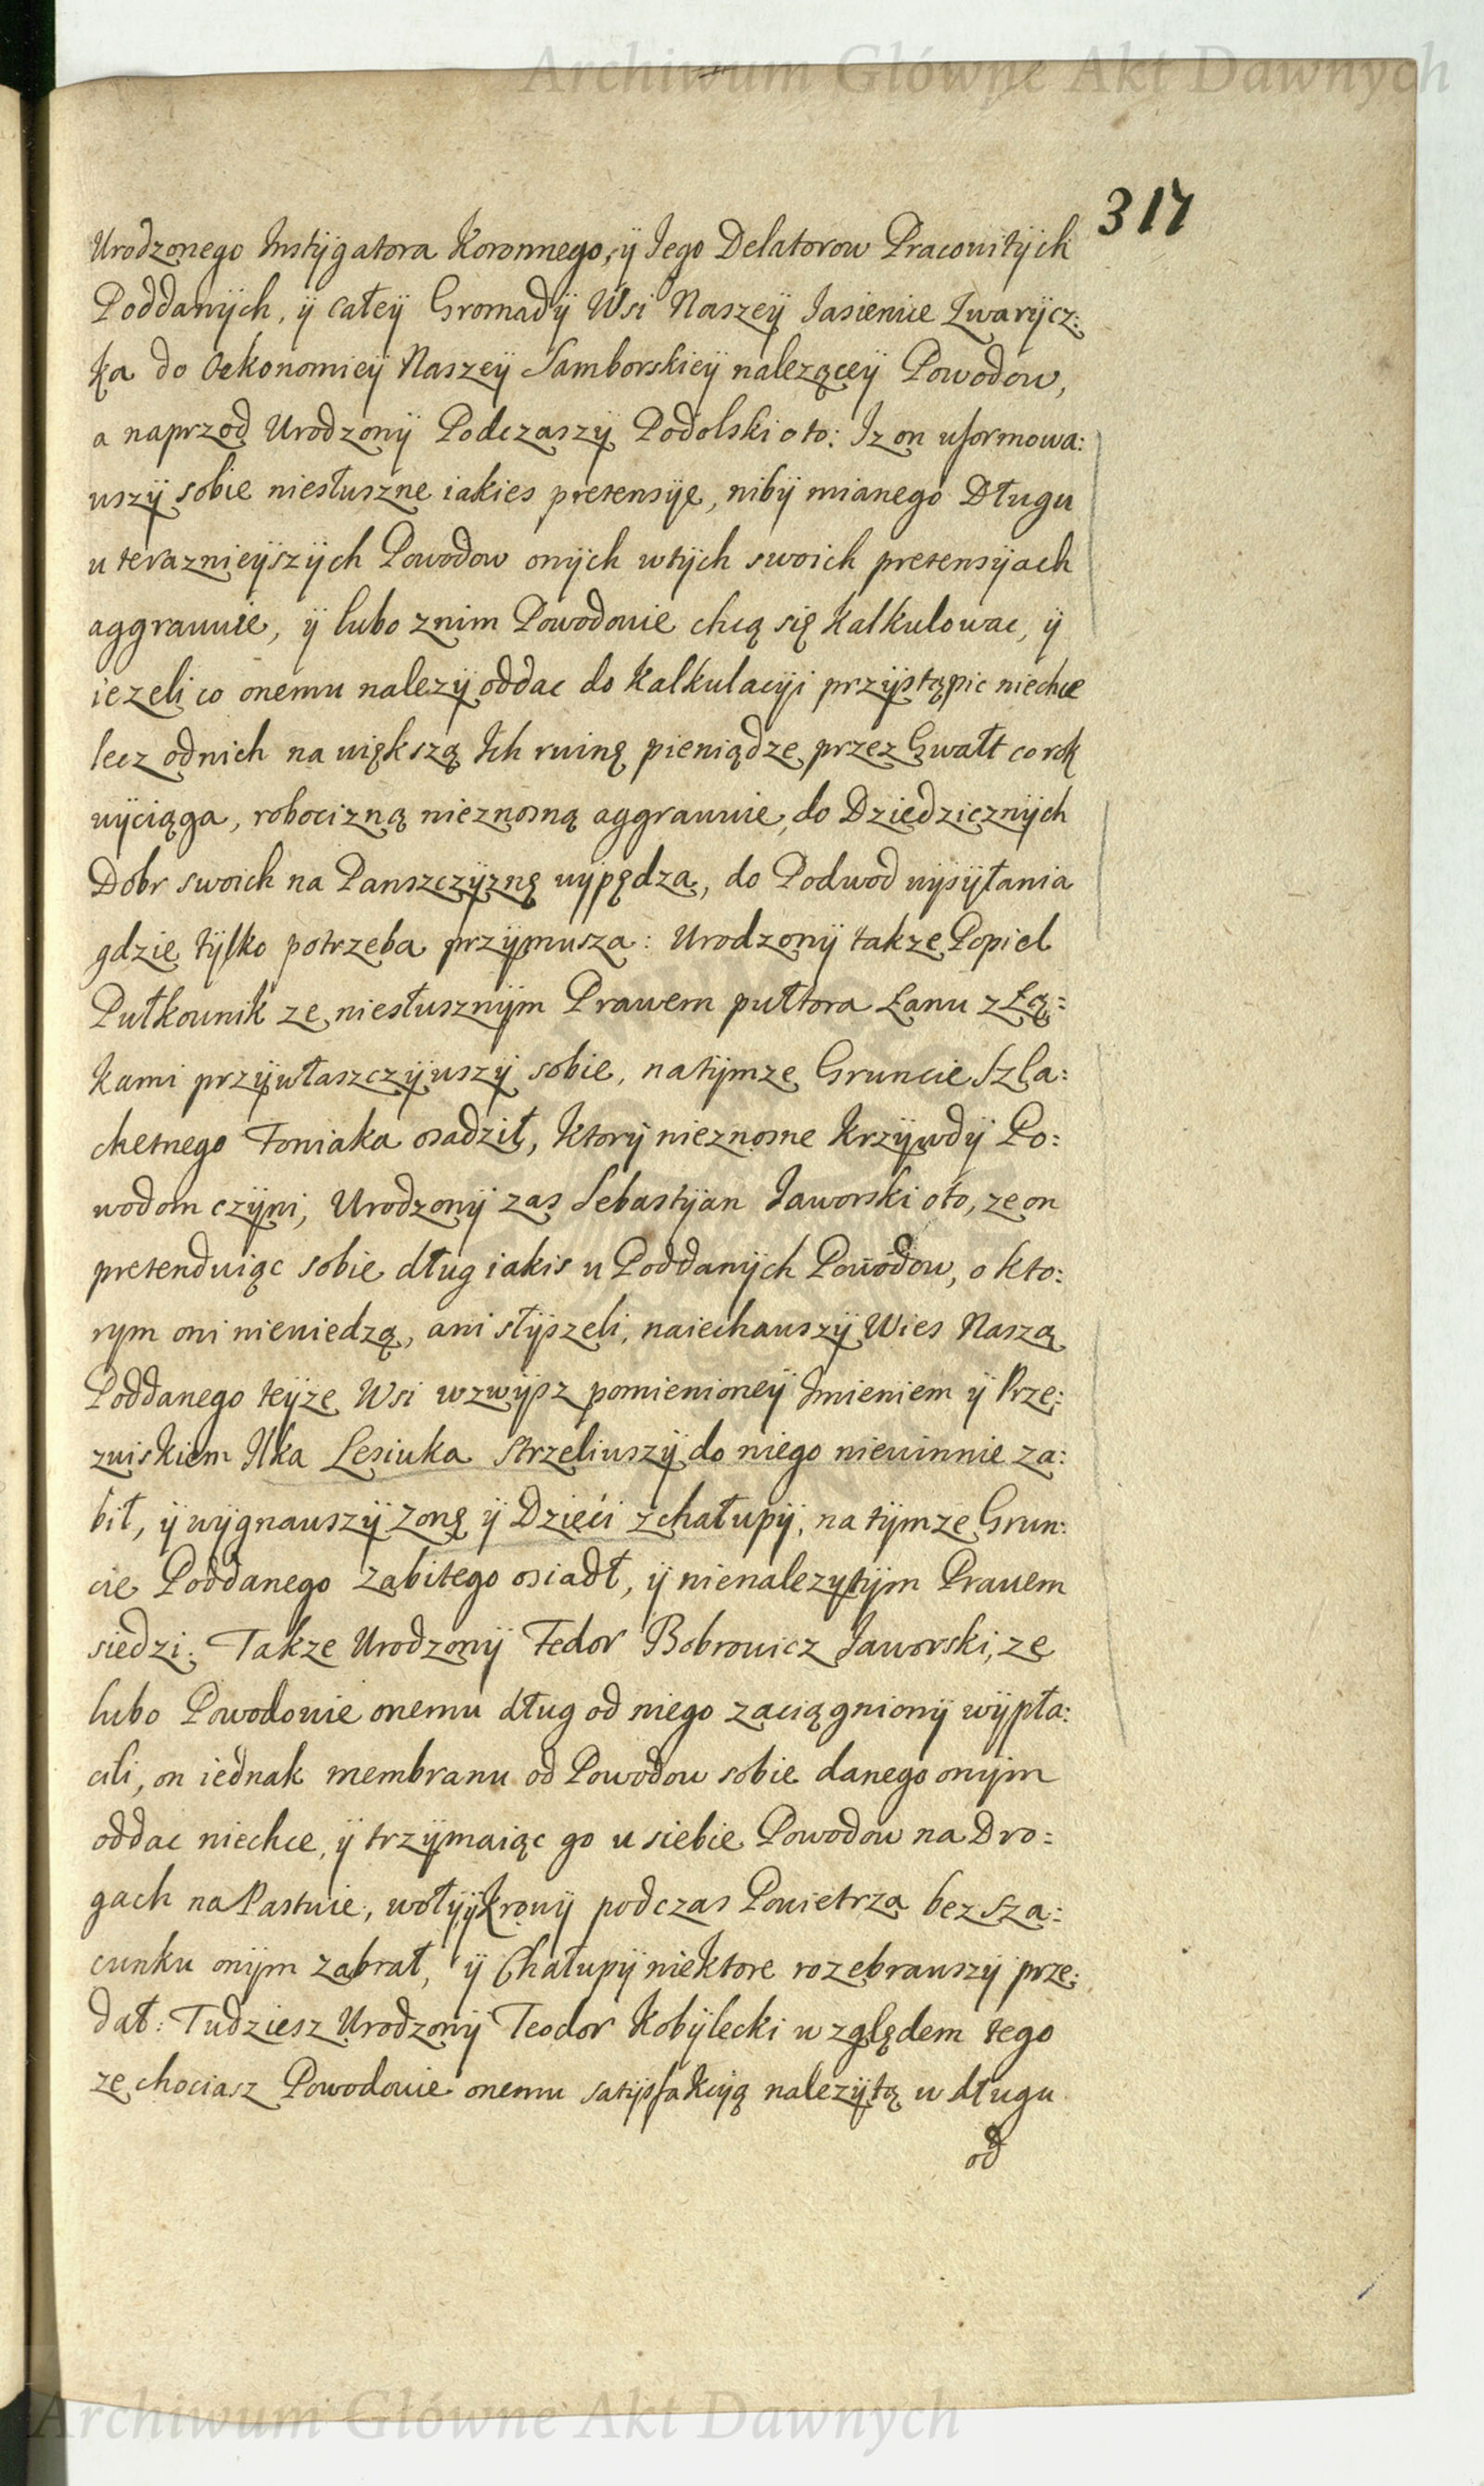 Archiwum Główne Akt Dawnych
317
Urodzonego Instÿgatora Koronnego, ÿ Jego Delatorow Pracowitÿch
Poddanÿch, ÿ całeÿ Gromadÿ Wsi Naszeÿ Jasienice Zwarÿcz:
ka do Oekonomieÿ Naszeÿ Samborskieÿ nalezącеÿ Powodow,
a naprzod Urodzonÿ Podczaszÿ Podolski oto: Iz on uformowa:
wszÿ sobie niesłuszne iakies pretensÿe, nibÿ mianego Długu
u teraznieÿszÿch Powodow onÿch wtÿch swoich pretensÿach
aggrawuie, ÿ lubo znim Powodowie chcą się kalkulowac, ÿ
iezeli co onemu nalezÿ oddac do kalkulacÿi przÿstąpic niechce
lecz odnich na większą Ich ruinę pieniądze przez Gwałt co rok
wÿciąga, robocizną nieznosną aggrawuie, do Dziedzicznÿch
Dobr swoich na Panszczÿznę wÿpędza, do Podwod wÿsÿłania
gdzie tÿlko potrzeba przÿmusza: Urodzonÿ takze Popiel
Pułkownik ze niesłusznÿm Prawem pułtora Łanu z Łą:
kami przÿwłaszczÿwszÿ sobie, natÿmze Gruncie Szla:
chetnego Foniaka osadził, ktorÿ nieznosne krzÿwdÿ Po:
wodom czÿni, Urodzonÿ zas Sebastÿan Jaworski oto, ze on
pretenduiąc sobie dług iakis u Poddanÿch Powodow, o kto:
rym oni niewiedzą, ani słÿszeli, naiechawszÿ Wies Naszą
Poddanego teÿze Wsi wzwÿsz pomienioneÿ Imieniem ÿ Prze:
zwiskiem Ilka Lesiuka strzeliwszÿ do niego niewinnie za:
bił, ÿ wÿgnawszÿ Zonę ÿ Dzieci zchałupÿ, na tÿmze Grun:
cie Poddanego zabitego osiadł, ÿ nienalezytÿm Prawem
siedzi. Takze Urodzonÿ Fedor Bobrowicz Jaworski, ze
lubo Powodowie onemu dług od niego zaciągnionÿ wÿpła:
cili, on iednak membranu od Powodow sobie danego onÿm
oddac niechce, ÿ trzÿmaiąc go u siebie Powodow na Dro:
gach na Pastwie, wołÿ ÿ krowÿ podczas Powietrza bez sza:
cunku onÿm zabrał, ÿ Chałupÿ niektore rozebrawszÿ prze:
dał: Tudziesz Urodzonÿ Teodor Kobÿlecki względem tego
ze chociasz Powodowie onemu satÿsfakcÿą nalezÿtą w długu
od
Archiwum Główne Akt Dawnych